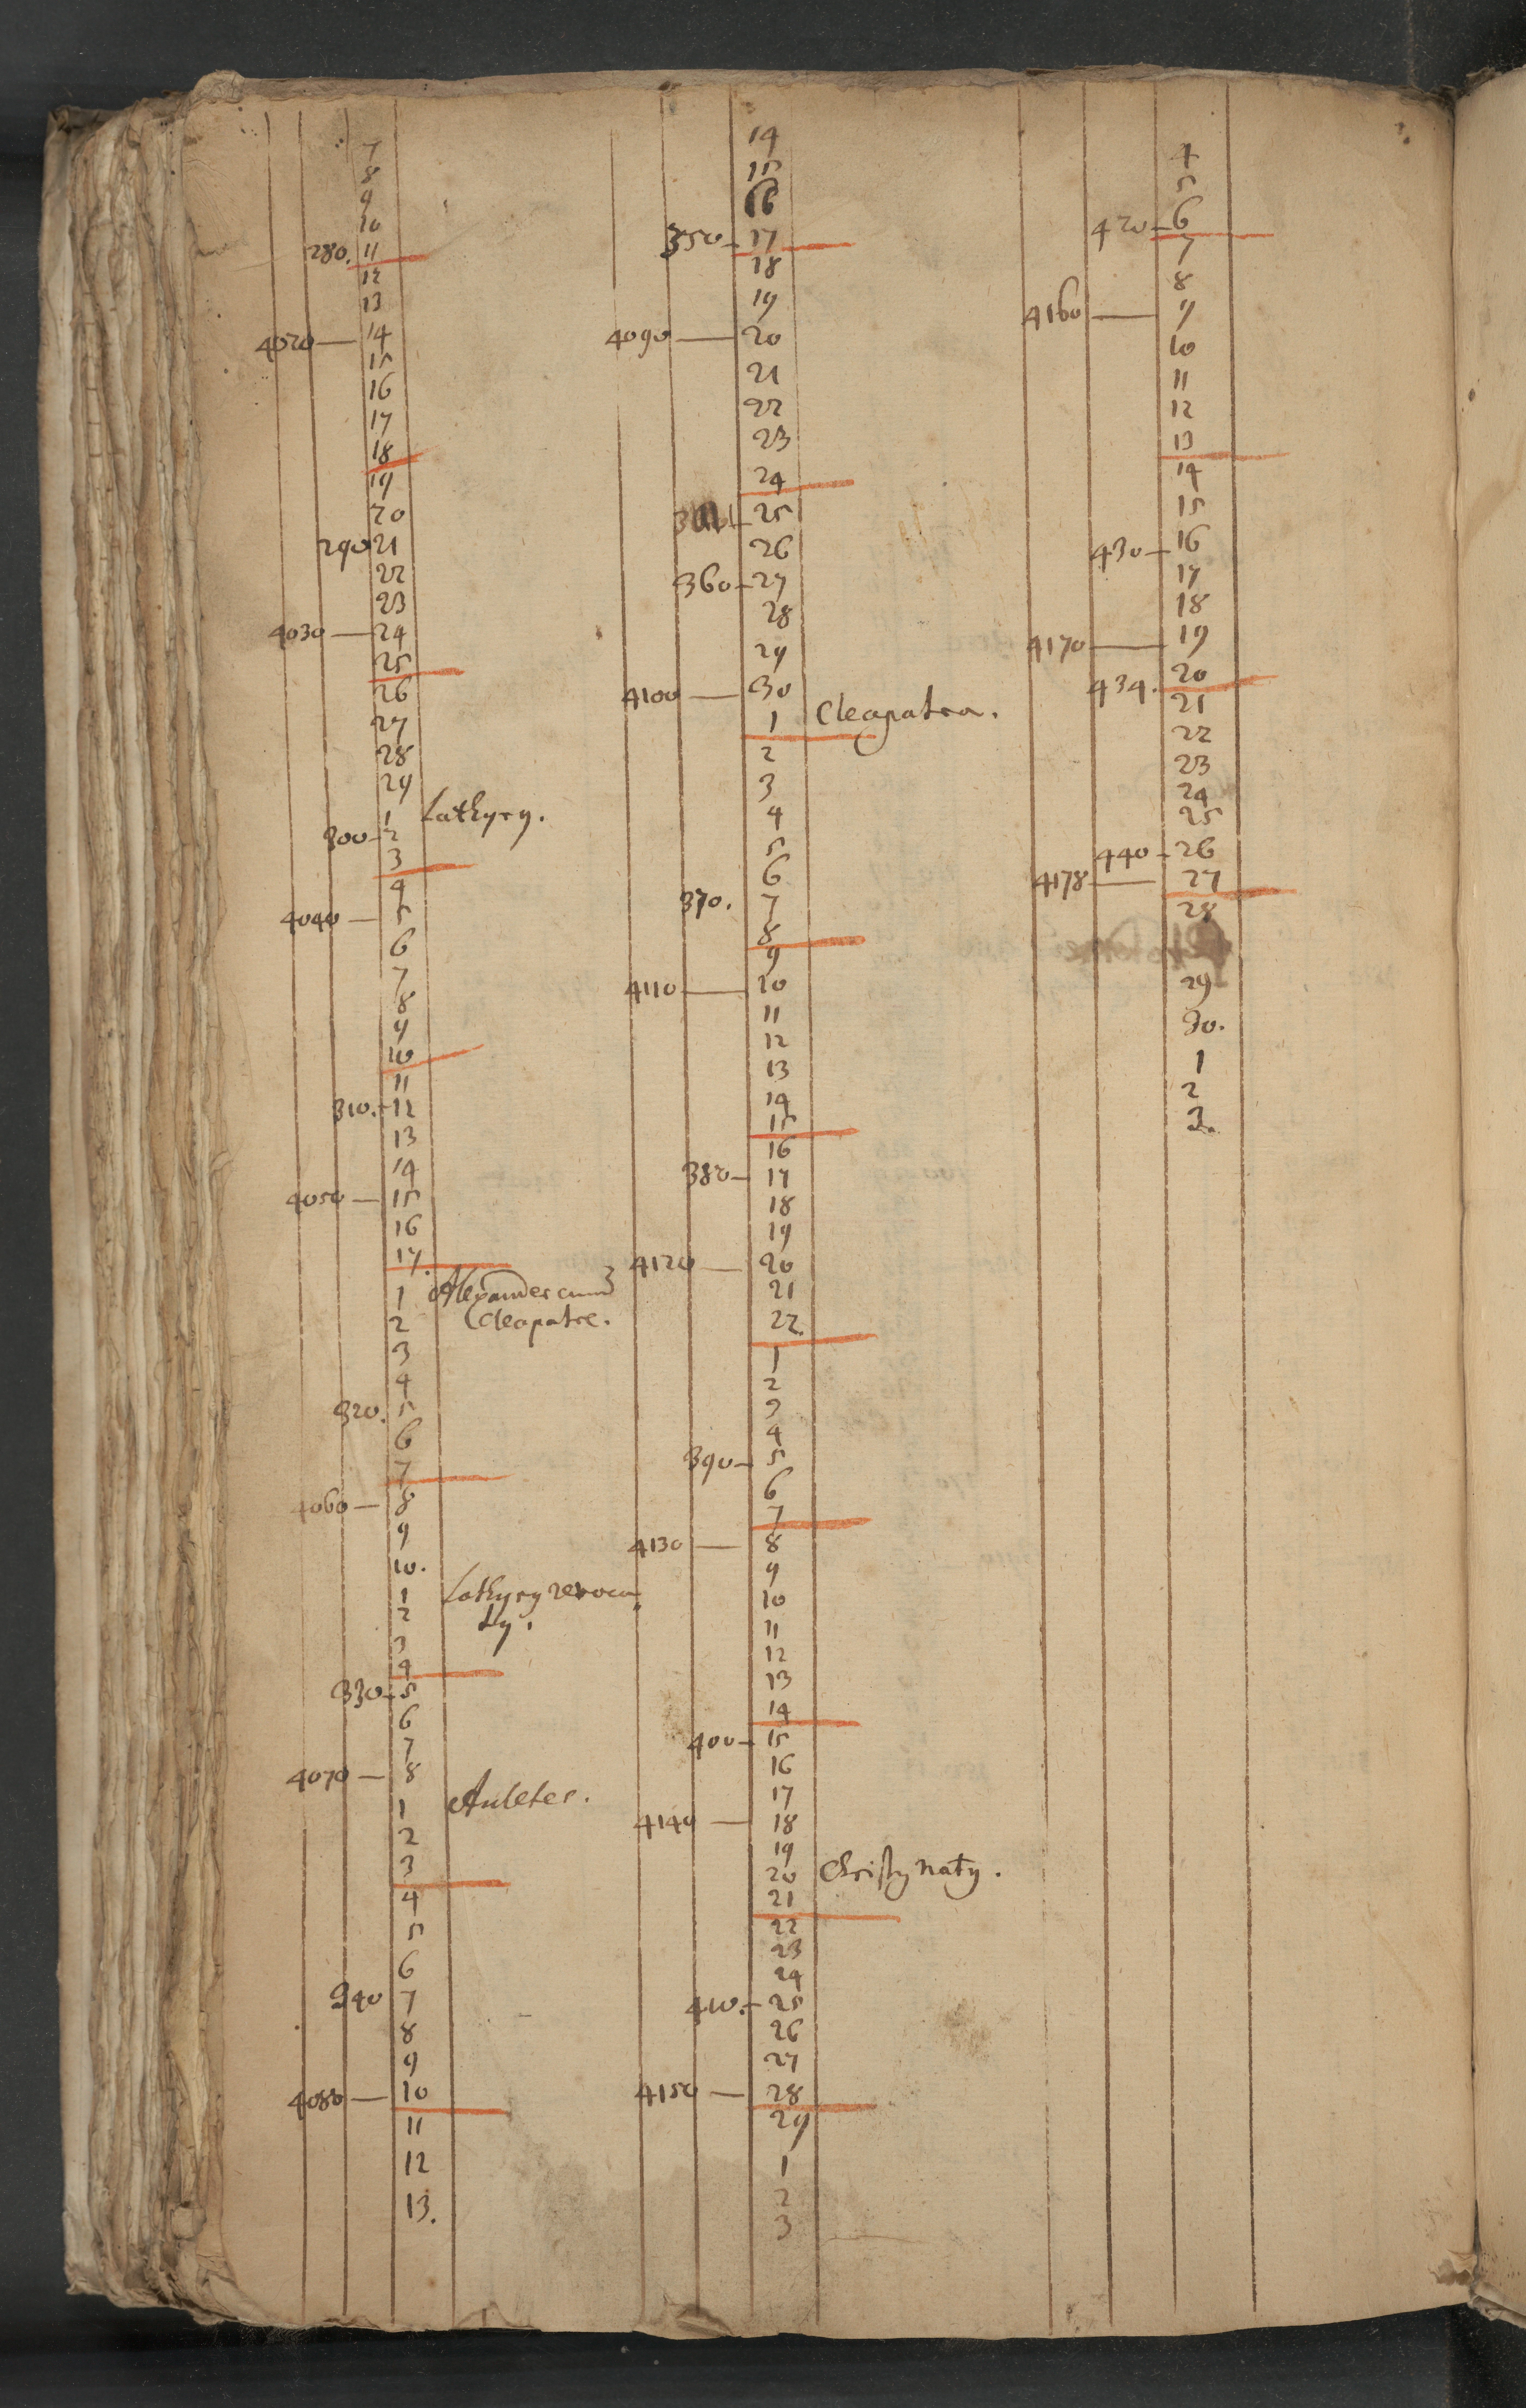 7
8
9
10
280. 11
12
13
4020 — 14
15
16
17
18
19
20
290 21
22
23
4030 — 24
25
26
27
28
29
1 Lathyrꝫ.
300 - 2
3
4
4040 — 5
6
7
8
9
10
11
310. - 12
13
14
4050 — 15
16
17.
1 Alexander cum
2 Cleopatre.
3
4
320. 5
6
7
4060 — 8
9
10.
1 Lathyrꝫ revoca
2 tꝫ.
3
4
330 - 5
6
7
4070 — 8
1 Auletes.
2
3
4
5
6
340 7
8
9
4080 — 10
11
12
13.
14
15
16
350 - 17
18
19
4090 — 20
21
22
23
24
25
26
360 - 27
28
29
4100 — 30
1 Cleapatra.
2
3
4
5
6
370. 7
8
9
4110 — 10
11
12
13
14
15
16
380 - 17
18
19
4120 — 20
21
22.
1
2
3
4
390 - 5
6
7
4130 — 8
9
10
11
12
13
14
400 - 15
16
17
4140 — 18
19
20 Christꝫ natꝫ.
21
22
23
24
410. - 25
26
27
4150 — 28
29
1
2
3
4
5
420 - 6
7
8
4160 — 9
10
11
12
13
14
15
430 - 16
17
18
4170 — 19
434. 20
21
22
23
24
25
440 - 26
4178 — 27
28
29
30.
1
2
3.